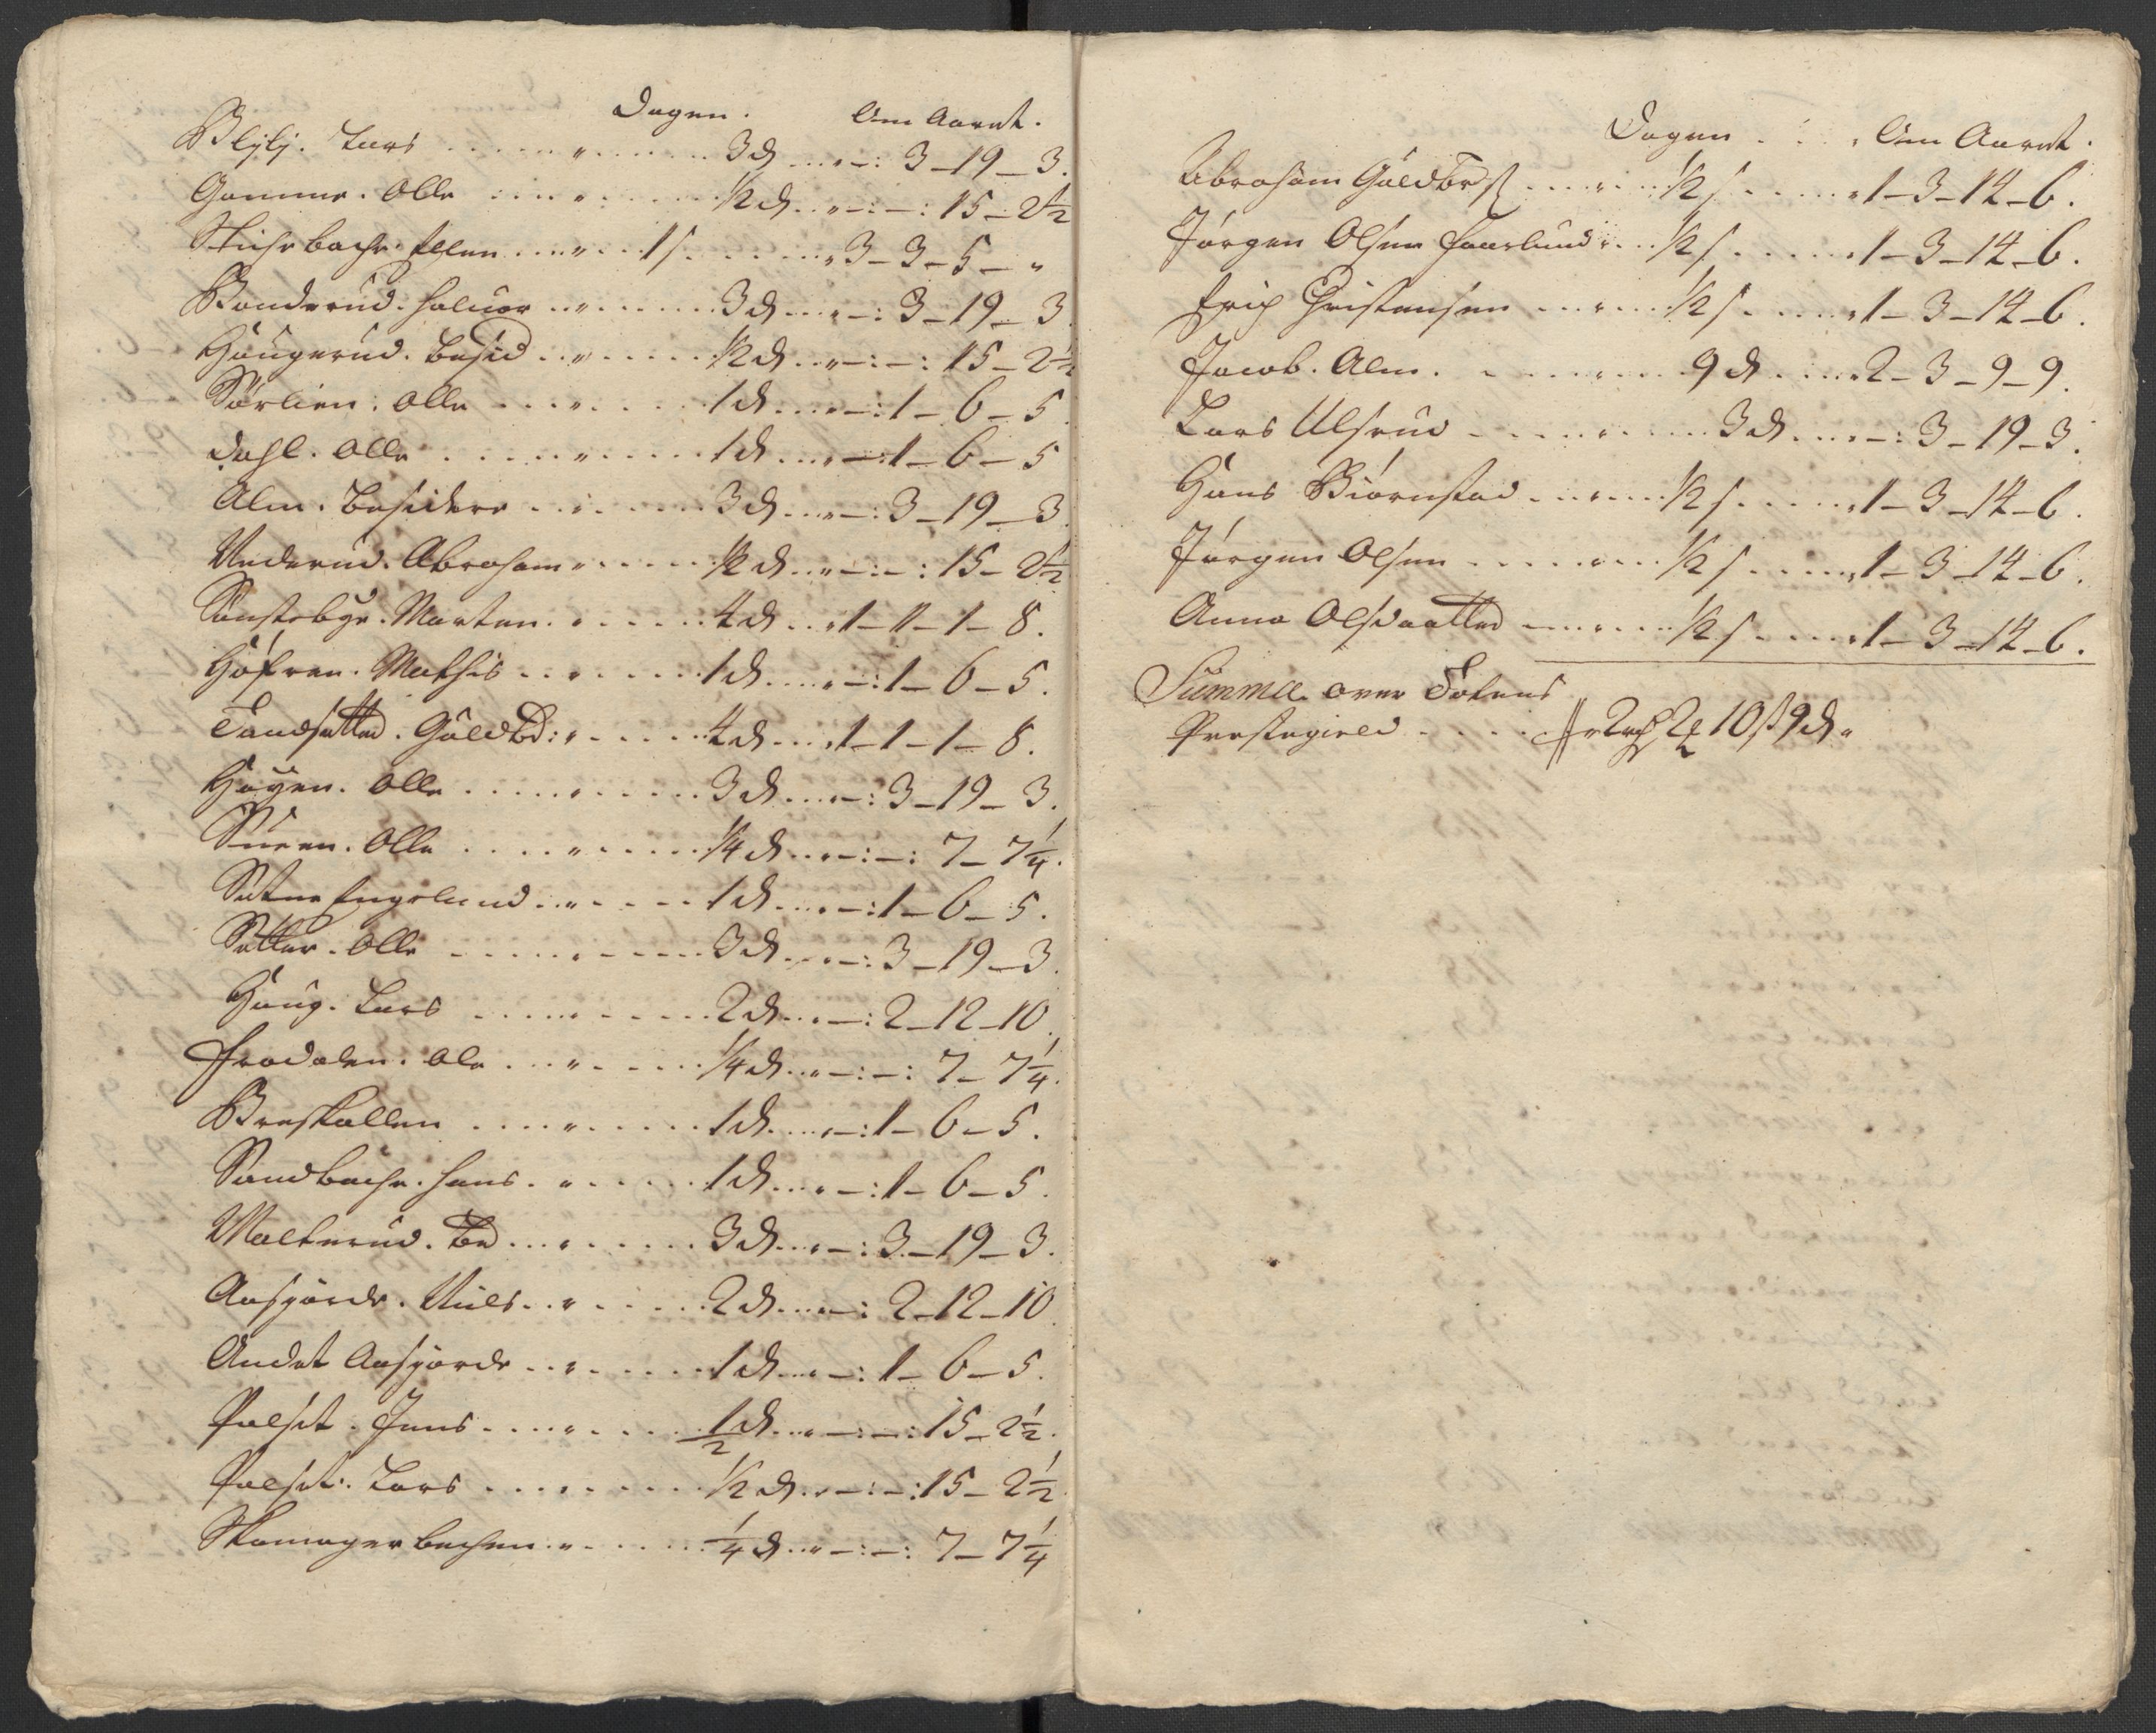 Dagen. Om Aaret.
Blÿlÿ. Lars ..... " ..... 3 d ... " -: 3 - 19 - 3.
Gamme. Olle ..... " ..... 1/2 d ... " -:-: 15 - 2 1/2
Stuhrbache. Ellen .... " ... 1 s ..... " 3 - 3 - 5 - "
Bonderud. Haluor .. " ..... 3 d ... " -: 3 - 19 - 3
Haugerud. Besid .. " ..... 1/2 d ... " -:-: 15 - 2 1/2
Sörlien. Olle .... " ..... 1 d ... " -: 1 - 6 - 5
Dahl. Olle ..... " ..... 1 d ... " -: 1 - 6 - 5
Alm. Besidere ... " ..... 3 d ... " -: 3 - 19 - 3.
Nederud. Abraham " ..... 1/2 d ... " -:-: 15 - 2 1/2
Sönstebye. Morten. " ..... 4 d ... " 1 - 1 - 1 - 8.
Höfren. Mathis ... " ..... 1 d .... " -: 1 - 6 - 5.
Tandsetter. Guldbr: " ..... 4 d ... " 1 - 1 - 1 - 8.
Haÿen. Olle ..... " ..... 3 d ... " -: 3 - 19 - 3.
Olle ..... " ..... 1/4 d ... " -:-: 7 - 7 1/4.
Sætre Engelund .. " ..... 1 d ... " -: 1 - 6 - 5.
Sætter. Olle ..... " ..... 3 d ... " -: 3 - 19 - 3.
Haug. Lars ..... " ..... 2 d ... " -: 2 - 12 - 10.
Frodalen. Ole ... " ..... 1/4 d ... " -:-: 7 - 7 1/4.
Breskallen .... " ..... 1 d .... " -: 1 - 6 - 5.
Sandbache. Hans. " ..... 1 d ... " -: 1 - 6 - 5.
Malterud. Be ... " ..... 3 d ... " -: 3 - 19 - 3.
Aasgaarde. Niels .. " ..... 2 d ... " -: 2 - 12 - 10.
Andet Aasgaarde .. " ..... 1 d ... " -: 1 - 6 - 5.
Pulset. Jens .... " ..... 1/2 d ... " -:-: 15 - 2 1/2.
Pulset. Lars .... " ..... 1/2 d ... " -:-: 15 - 2 1/2
Skomager bechen. " ..... 1/4 d ... " -:-: 7 - 7 1/4
Dagen . . . Om Aaret.
Abraham Guldbrs ..... " ... 1/2 s ..... " 1 - 3 - 14 - 6.
Jörgen Olsen Faarlund " ... 1/2 s ..... " 1 - 3 - 14 - 6.
Erich Christensen .... " ... 1/2 s ..... " 1 - 3 - 14 - 6.
Jacob. Alm. ..... " ... 9 d ..... " 2 - 3 - 9 - 9.
Lars Ulsrud ..... " ..... 3 d .... " -: 3 - 19 - 3.
Hans Biörnstad .... " ... 1/2 s ..... " 1 - 3 - 14 - 6.
Jörgen Olsen ..... " ... 1/2 s ..... " 1 - 3 - 14 - 6.
Anna Olsdaatter .... " ... 1/2 s ..... " 1 - 3 - 14 - 6.
Summa over Totens
Prestegield ..... 10 ß 9 d "